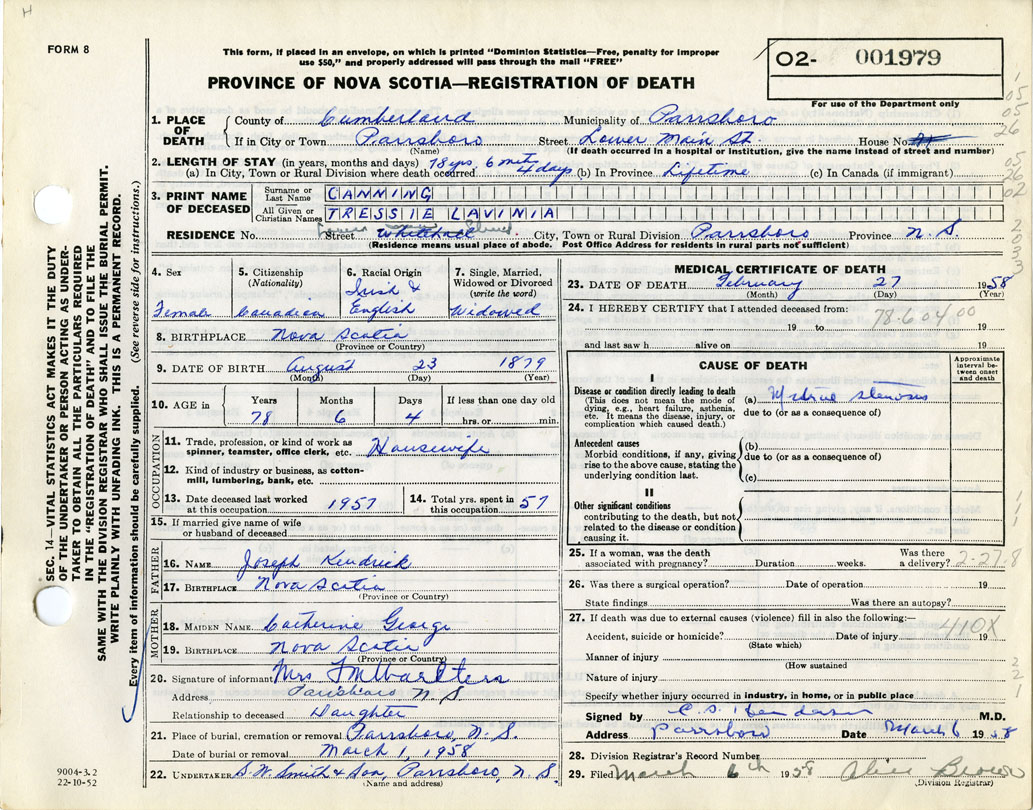 H
FORM 8
This form, if placed in an envelope, on which is printed "Dominion Statistics—Free, penalty for improper
use $50," and properly addressed will pass through the mail "FREE"
PROVINCE OF NOVA SCOTIA—REGISTRATION OF DEATH
O2- 001979
For use of the Department only
1. PLACE OF DEATH
County of Cumberland Municipality of Parrsboro
If in City or Town Parrsboro Street Lower Main St. House No.
(Name) (If death occurred in a hospital or institution, give the name instead of street and number)
2. LENGTH OF STAY (in years, months and days) 78 yrs, 6 mts
(a) In City, Town or Rural Division where death occurred 4 days (b) In Province Lifetime (c) In Canada (if immigrant)
3. PRINT NAME OF DECEASED
Surname or Last Name CANNING
All Given or Christian Names TRESSIE LAVINIA
RESIDENCE No. Street Whitehall City, Town or Rural Division Parrsboro Province N.S.
(Residence means usual place of abode. Post Office Address for residents in rural parts not sufficient)
4. Sex
Female
5. Citizenship
(Nationality)
Canadian
6. Racial Origin
Irish &
English
7. Single, Married,
Widowed or Divorced
(write the word)
Widowed
8. BIRTHPLACE Nova Scotia
(Province or Country)
9. DATE OF BIRTH August 23 1879
(Month) (Day) (Year)
10. AGE in Years Months Days If less than one day old
78 6 4 hrs. or min.
OCCUPATION
11. Trade, profession, or kind of work as
spinner, teamster, office clerk, etc. Housewife
12. Kind of industry or business, as cotton-
mill, lumbering, bank, etc.
13. Date deceased last worked
at this occupation 1957
14. Total yrs. spent in
this occupation 57
15. If married give name of wife
or husband of deceased
FATHER
16. Name Joseph Kendrick
17. Birthplace Nova Scotia
(Province or Country)
MOTHER
18. Maiden Name Catherine George
19. Birthplace Nova Scotia
(Province or Country)
20. Signature of informant Mrs
Address Parrsboro N S
Relationship to deceased Daughter
21. Place of burial, cremation or removal Parrsboro, N. S.
Date of burial or removal March 1, 1958
22. Undertaker D. W. Smith & Son, Parrsboro, N. S.
(Name and address)
MEDICAL CERTIFICATE OF DEATH
23. DATE OF DEATH February 27 1958
(Month) (Day) (Year)
24. I HEREBY CERTIFY that I attended deceased from: 78-604.00
19 to 19
and last saw h alive on 19
CAUSE OF DEATH
Approximate
interval be-
tween onset
and death
I
Disease or condition directly leading to death
(This does not mean the mode of
dying, e.g., heart failure, asthenia,
etc. It means the disease, injury, or
complication which caused death.)
(a) Mitral stenosis
due to (or as a consequence of)
Antecedent causes
Morbid conditions, if any, giving
rise to the above cause, stating the
underlying condition last.
(b)
due to (or as a consequence of)
(c)
II
Other significant conditions
contributing to the death, but not
related to the disease or condition
causing it.
25. If a woman, was the death Was there
associated with pregnancy? Duration weeks. a delivery? 2-27-8
26. Was there a surgical operation? Date of operation 19
State findings Was there an autopsy?
27. If death was due to external causes (violence) fill in also the following:—
410X
Accident, suicide or homicide? Date of injury 19
(State which)
Manner of injury
(How sustained
Nature of injury
Specify whether injury occurred in industry, in home, or in public place
Signed by C. S. Henderson M.D.
Address Parrsboro Date March 6 1958
28. Division Registrar's Record Number
29. Filed March 6th 1958 Alice Brown
(Division Registrar)
SEC. 14—VITAL STATISTICS ACT MAKES IT THE DUTY
OF THE UNDERTAKER OR PERSON ACTING AS UNDER-
TAKER TO OBTAIN ALL THE PARTICULARS REQUIRED
IN THE "REGISTRATION OF DEATH" AND TO FILE THE
SAME WITH THE DIVISION REGISTRAR WHO SHALL ISSUE THE BURIAL PERMIT.
WRITE PLAINLY WITH UNFADING INK. THIS IS A PERMANENT RECORD.
Every item of information should be carefully supplied. (See reverse side for instructions.)
9004-3.2
22-10-52
1
05
05
26
05
26
02
2
0
5
3
1
1
1
2
2
1